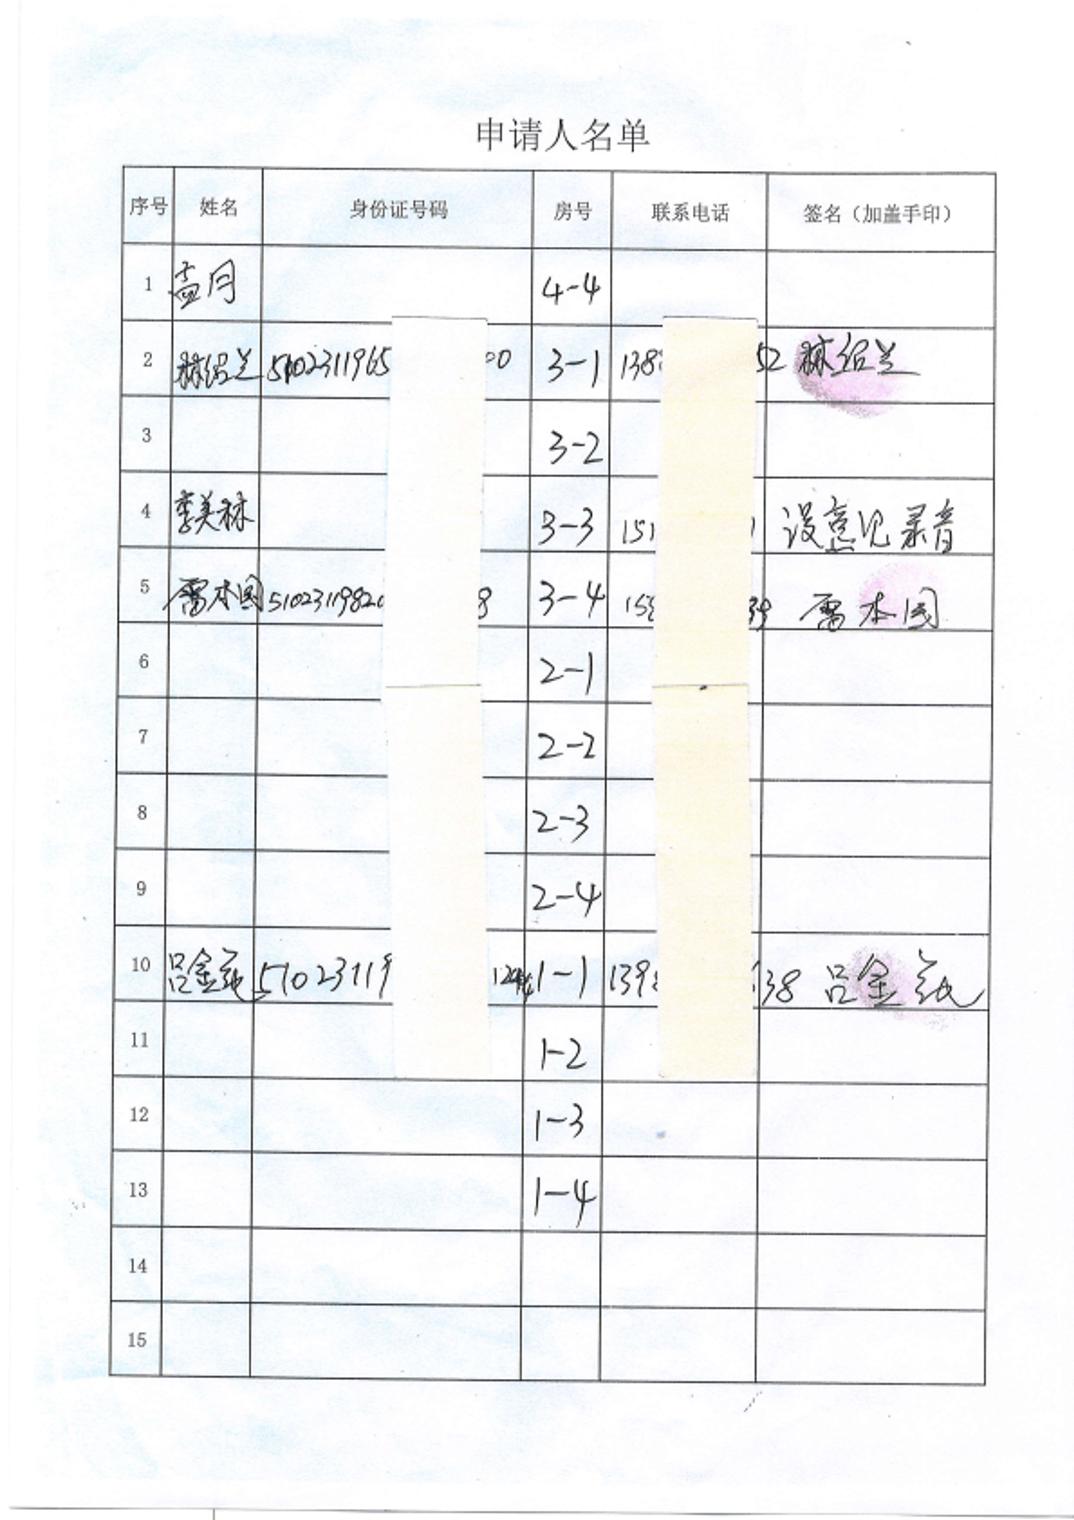 申请人名单
序号 姓名 身份证号码 房号 联系电话 签名（加盖手印）
1 孟月 4-4
2 林绍兰 5102311965 00 3-1 138 52 林绍兰
3 3-2
4 李美林 3-3 151 1 没意见录音
5 雷本国 51023119820 8 3-4 158 39 雷本国
6 2-1
7 2-2
8 2-3
9 2-4
10 吕金 51023119 1-1 139 138 吕金
11 1-2
12 1-3
13 1-4
14
15